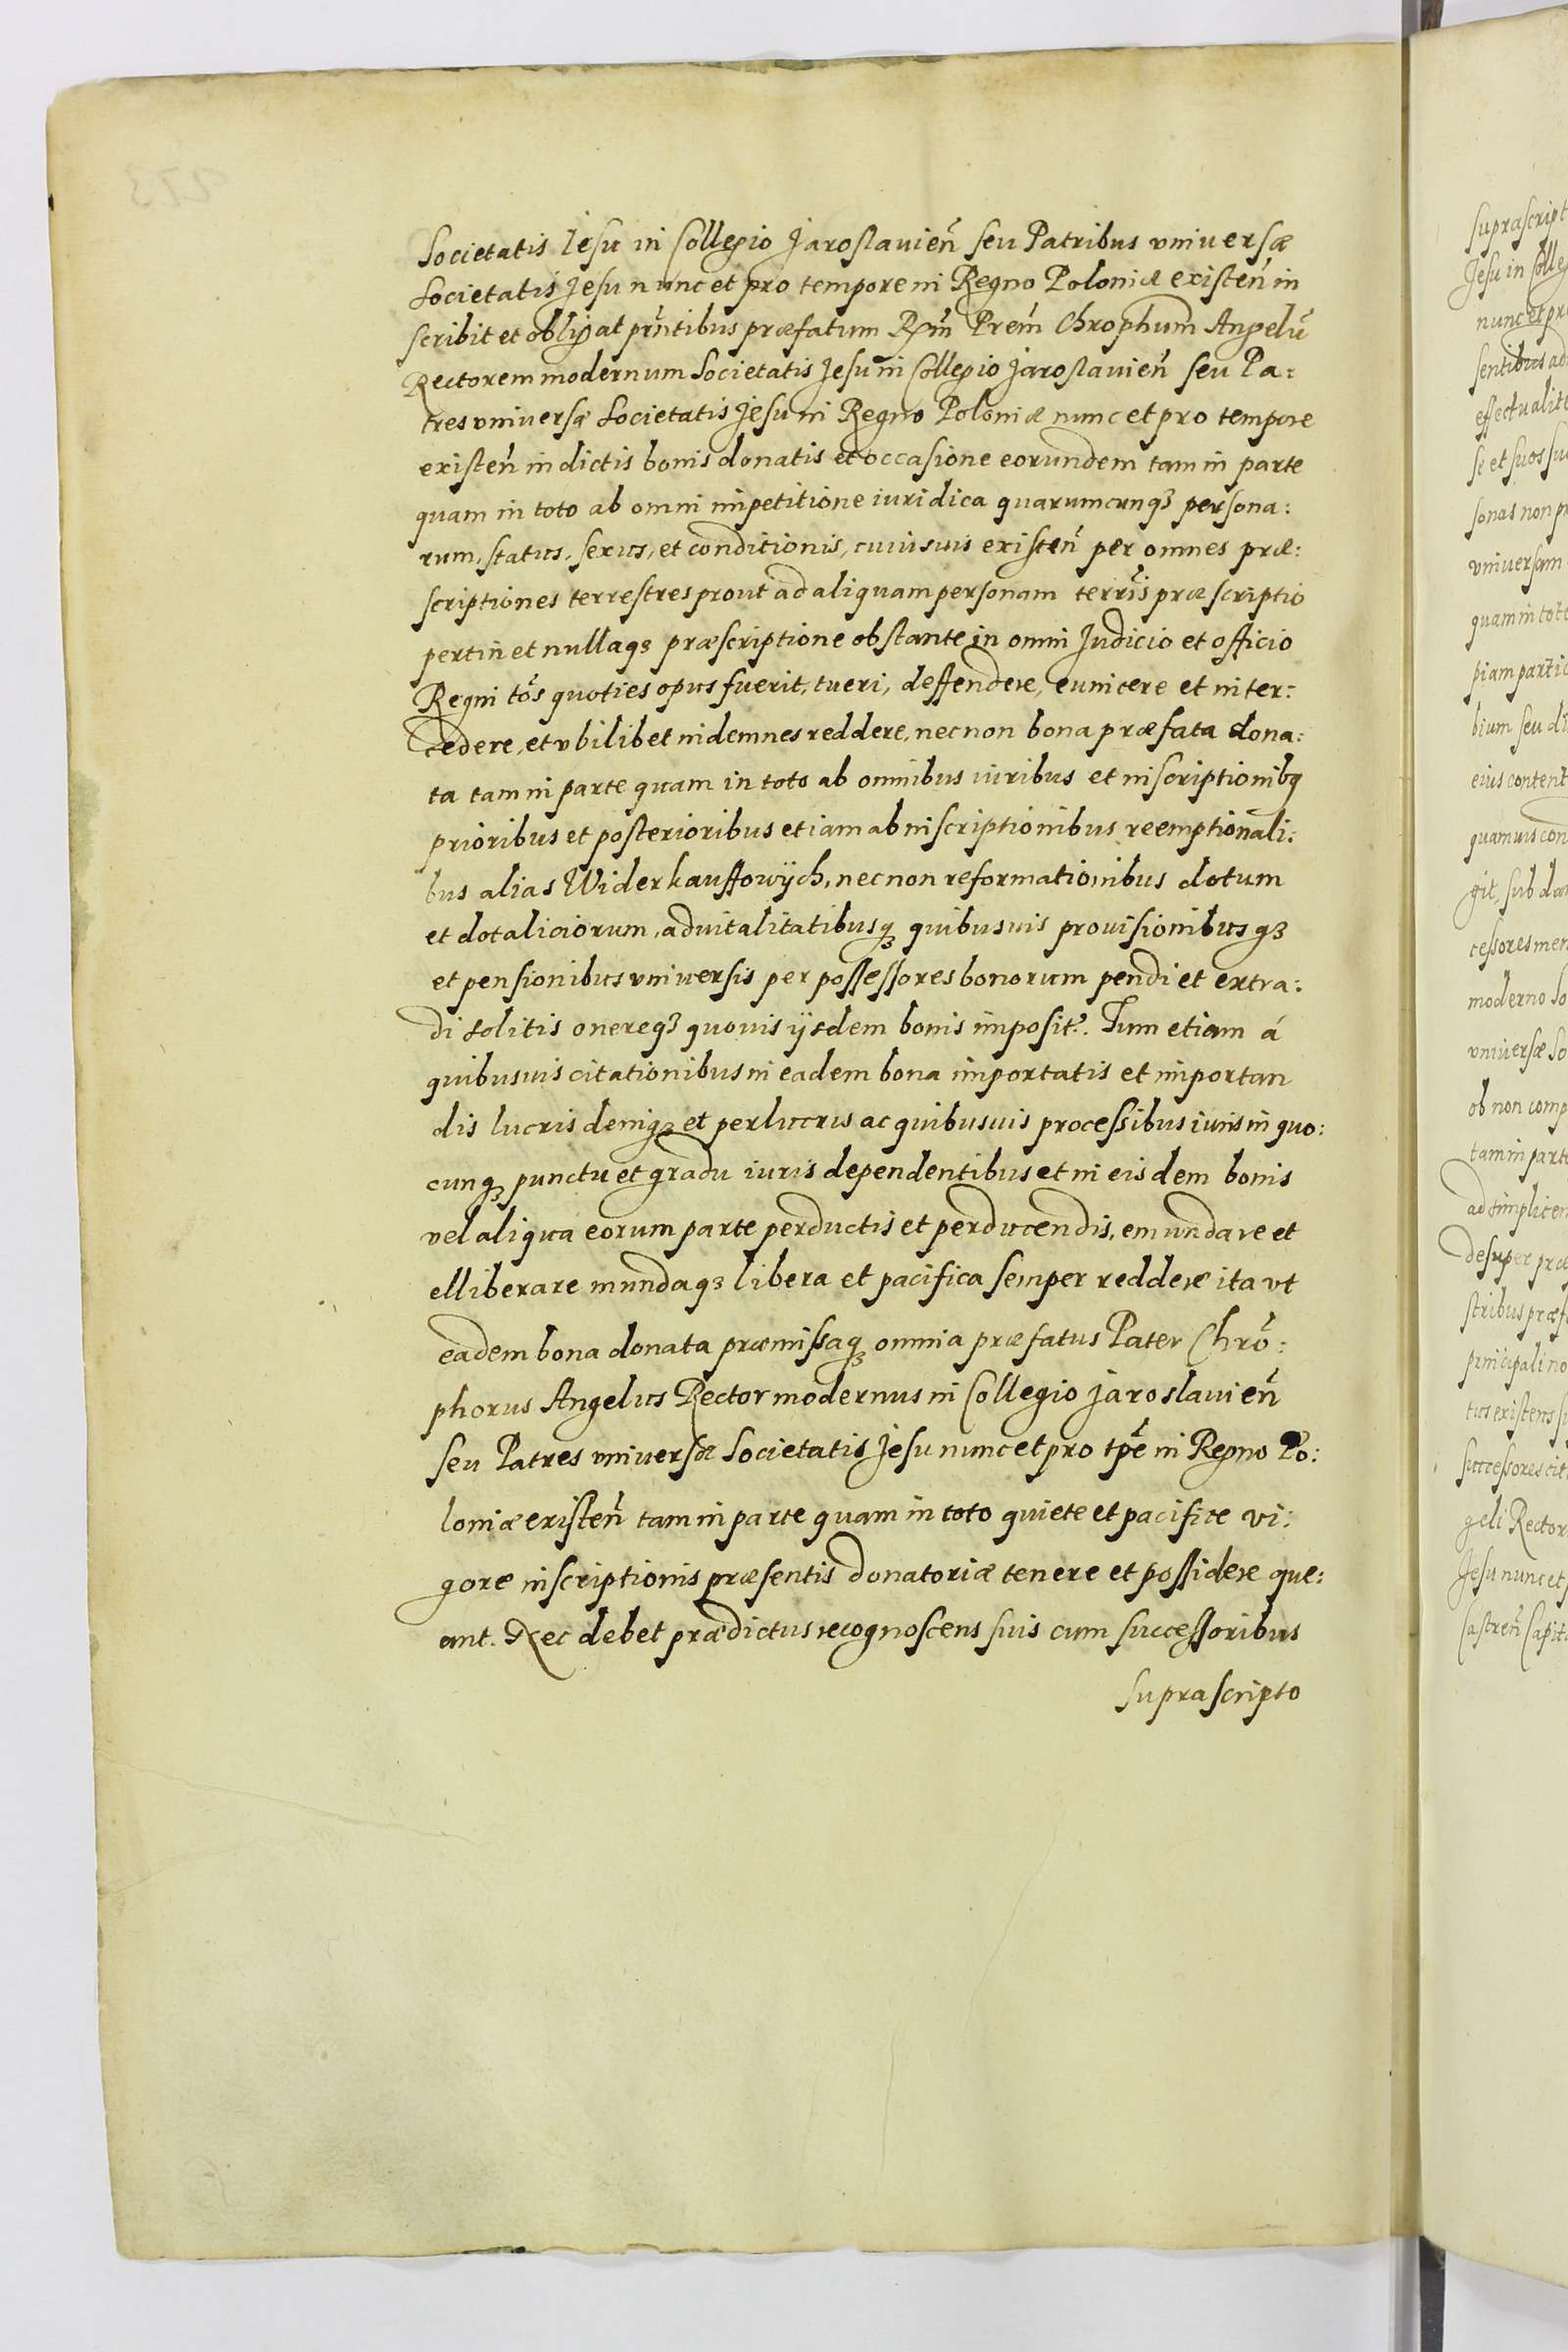 Societatis Iesu in Collegio Jaroslauień seu Patribus vniuersæ
Societatis Jesu nunc et pro tempore in Regno Poloniæ existeń in
scribit et obligat prñtibus præfatum Rm̃ Prem̃ Chrophum Angelū
Rectorem modernum Societatis Jesu in Collegio Jaroslauień seu Pa:
tres vniuersæ Societatis Jesu in Regno Poloniæ nunc et pro tempore
existeń in dictis bonis donatis et occasione eorundem tam in parte
quam in toto ab omni impetitione iuridica quarumcunqȝ persona:
rum, status, sexus, et conditionis, cuiusuis existeń per omnes præ:
scriptiones terrestres prout ad aliquam personam terrĩs præscriptio
pertiñ et nullaqȝ præscriptione obstante in omni Judicio et officio
Regni tõs quoties opus fuerit, tueri, deffendere, euincere et inter:
cedere, et vbilibet indemnes reddere, necnon bona præfata dona:
ta tam in parte quam in toto ab omnibus iuribus et inscriptionibꝗ
prioribus et posterioribus etiam ab inscriptionibus reemptionali:
bus alias Widerkauffowÿch, necnon reformationibus dotum
et dotaliciorum, aduitalitatibusqȝ quibusuis prouisionibusqȝ
et pensionibus vniuersis per possessores bonorum pendi et extra:
di solitis onereqȝ quouis ijsdem bonis imposit?. Tum etiam á
quibusuis citationibus in eadem bona importatis et importan
dis lucris deniqȝ et perlucris ac quibusuis processibus iuris in quo:
cunqȝ punctu et gradu iuris dependentibus et in eisdem bonis
vel aliqua eorum parte perductis et perducendis, emundare et
elliberare mundaqȝ libera et pacifica semper reddere ita vt
eadem bona donata præmissaqȝ omnia præfatus Pater Chrõ:
phorus Angelus Rector modernus in Collegio Jaroslauień
seu Patres vniuersæ Societatis Jesu nunc et pro tpẽ in Regno Po:
loniæ existeń tam in parte quam in toto quiete et pacifice vi:
gore inscriptionis præsentis donatoriæ tenere et possidere que:
ant. Nec debet prædictus recognoscens suis cum successoribus
suprascripto
suprascript
Jesu in Colle
nunc et pr
sentibus ad
effectualite
se et suos su
sonas non p
vniuersam
quam in toto
piam partic
bium seu di
eius content
quamuis con
git, sub da
cessores mem
moderno So
vniuersæ So
ob non comp
tam in parte
ad simplicem
desuper præ
stribus præf
principali no
tus existens s
successores cit
geli Rector
Jesu nunc et p
Castreń Capit